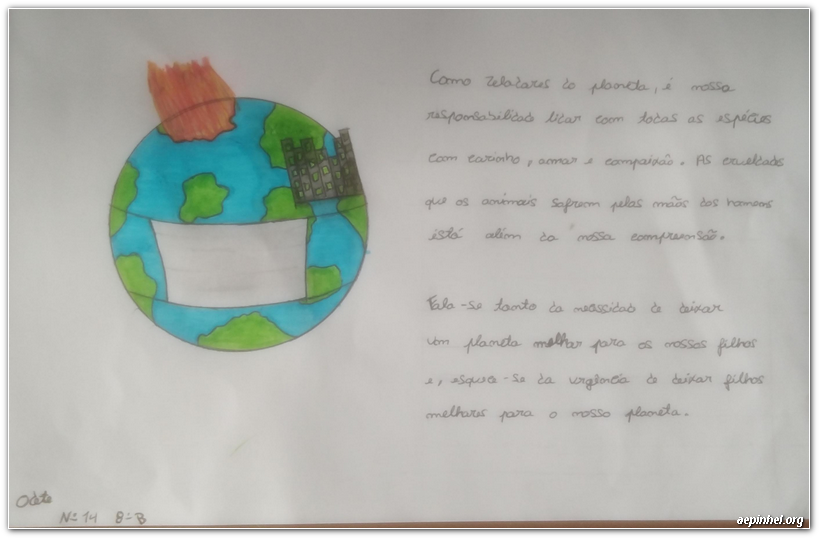 Como zeladores do planeta, é nossa
responsabilidad lidar com todas as espécies
com carinho, amor e compaixão. AS crueldads
que os animais sofrem pelas mãos dos homens
está além da nossa compreensão.
Fala-se tanto da necessidad de deixar
um planeta melhor para os nossos filhos
e, esquece-se da urgência de deixar filhos
melhores para o nosso planeta.
Odete
Nº 14 8º B
aepinhel.org